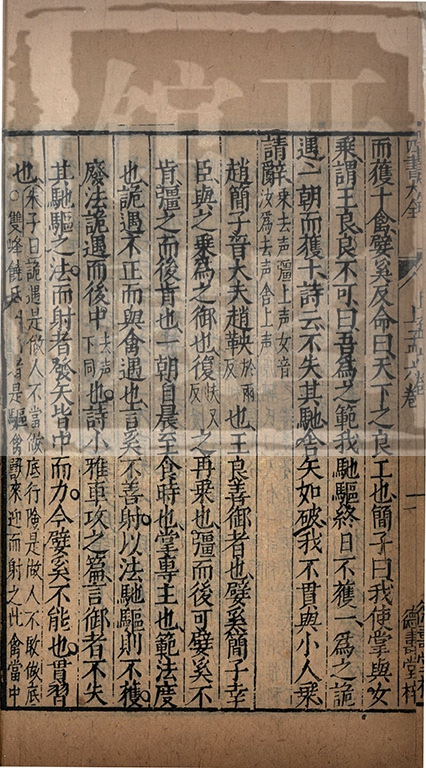 而獲十禽嬖奚反命曰天下之良工也簡子曰我使掌與女
乘謂王良良不可曰吾爲之範我馳驅終日不獲一爲之詭
遇一朝而獲十詩云不失其馳舍矢如破我不貫與小人乘
請辭乘去声彊上声女音汝爲去声舍上声
趙簡子晉大夫趙鞅於兩反也王良善御者也嬖奚簡子幸
臣與之乘爲之御也復扶又反之再乘也彊而後可嬖奚不
肯彊之而後肯也一朝自晨至食時也掌專主也範法度
也詭遇不正而與禽遇也言奚不善射以法馳驅則不獲
廢法詭遇而後中去声下同也詩小雅車攻之篇言御者不失
其馳驅之法而射者發矢皆中而力今嬖奚不能也貫習
也○朱子曰詭遇是做人不當做底行險是做人不敢做底○雙峰饒氏曰
是驅禽獸來迎而射之此禽當中